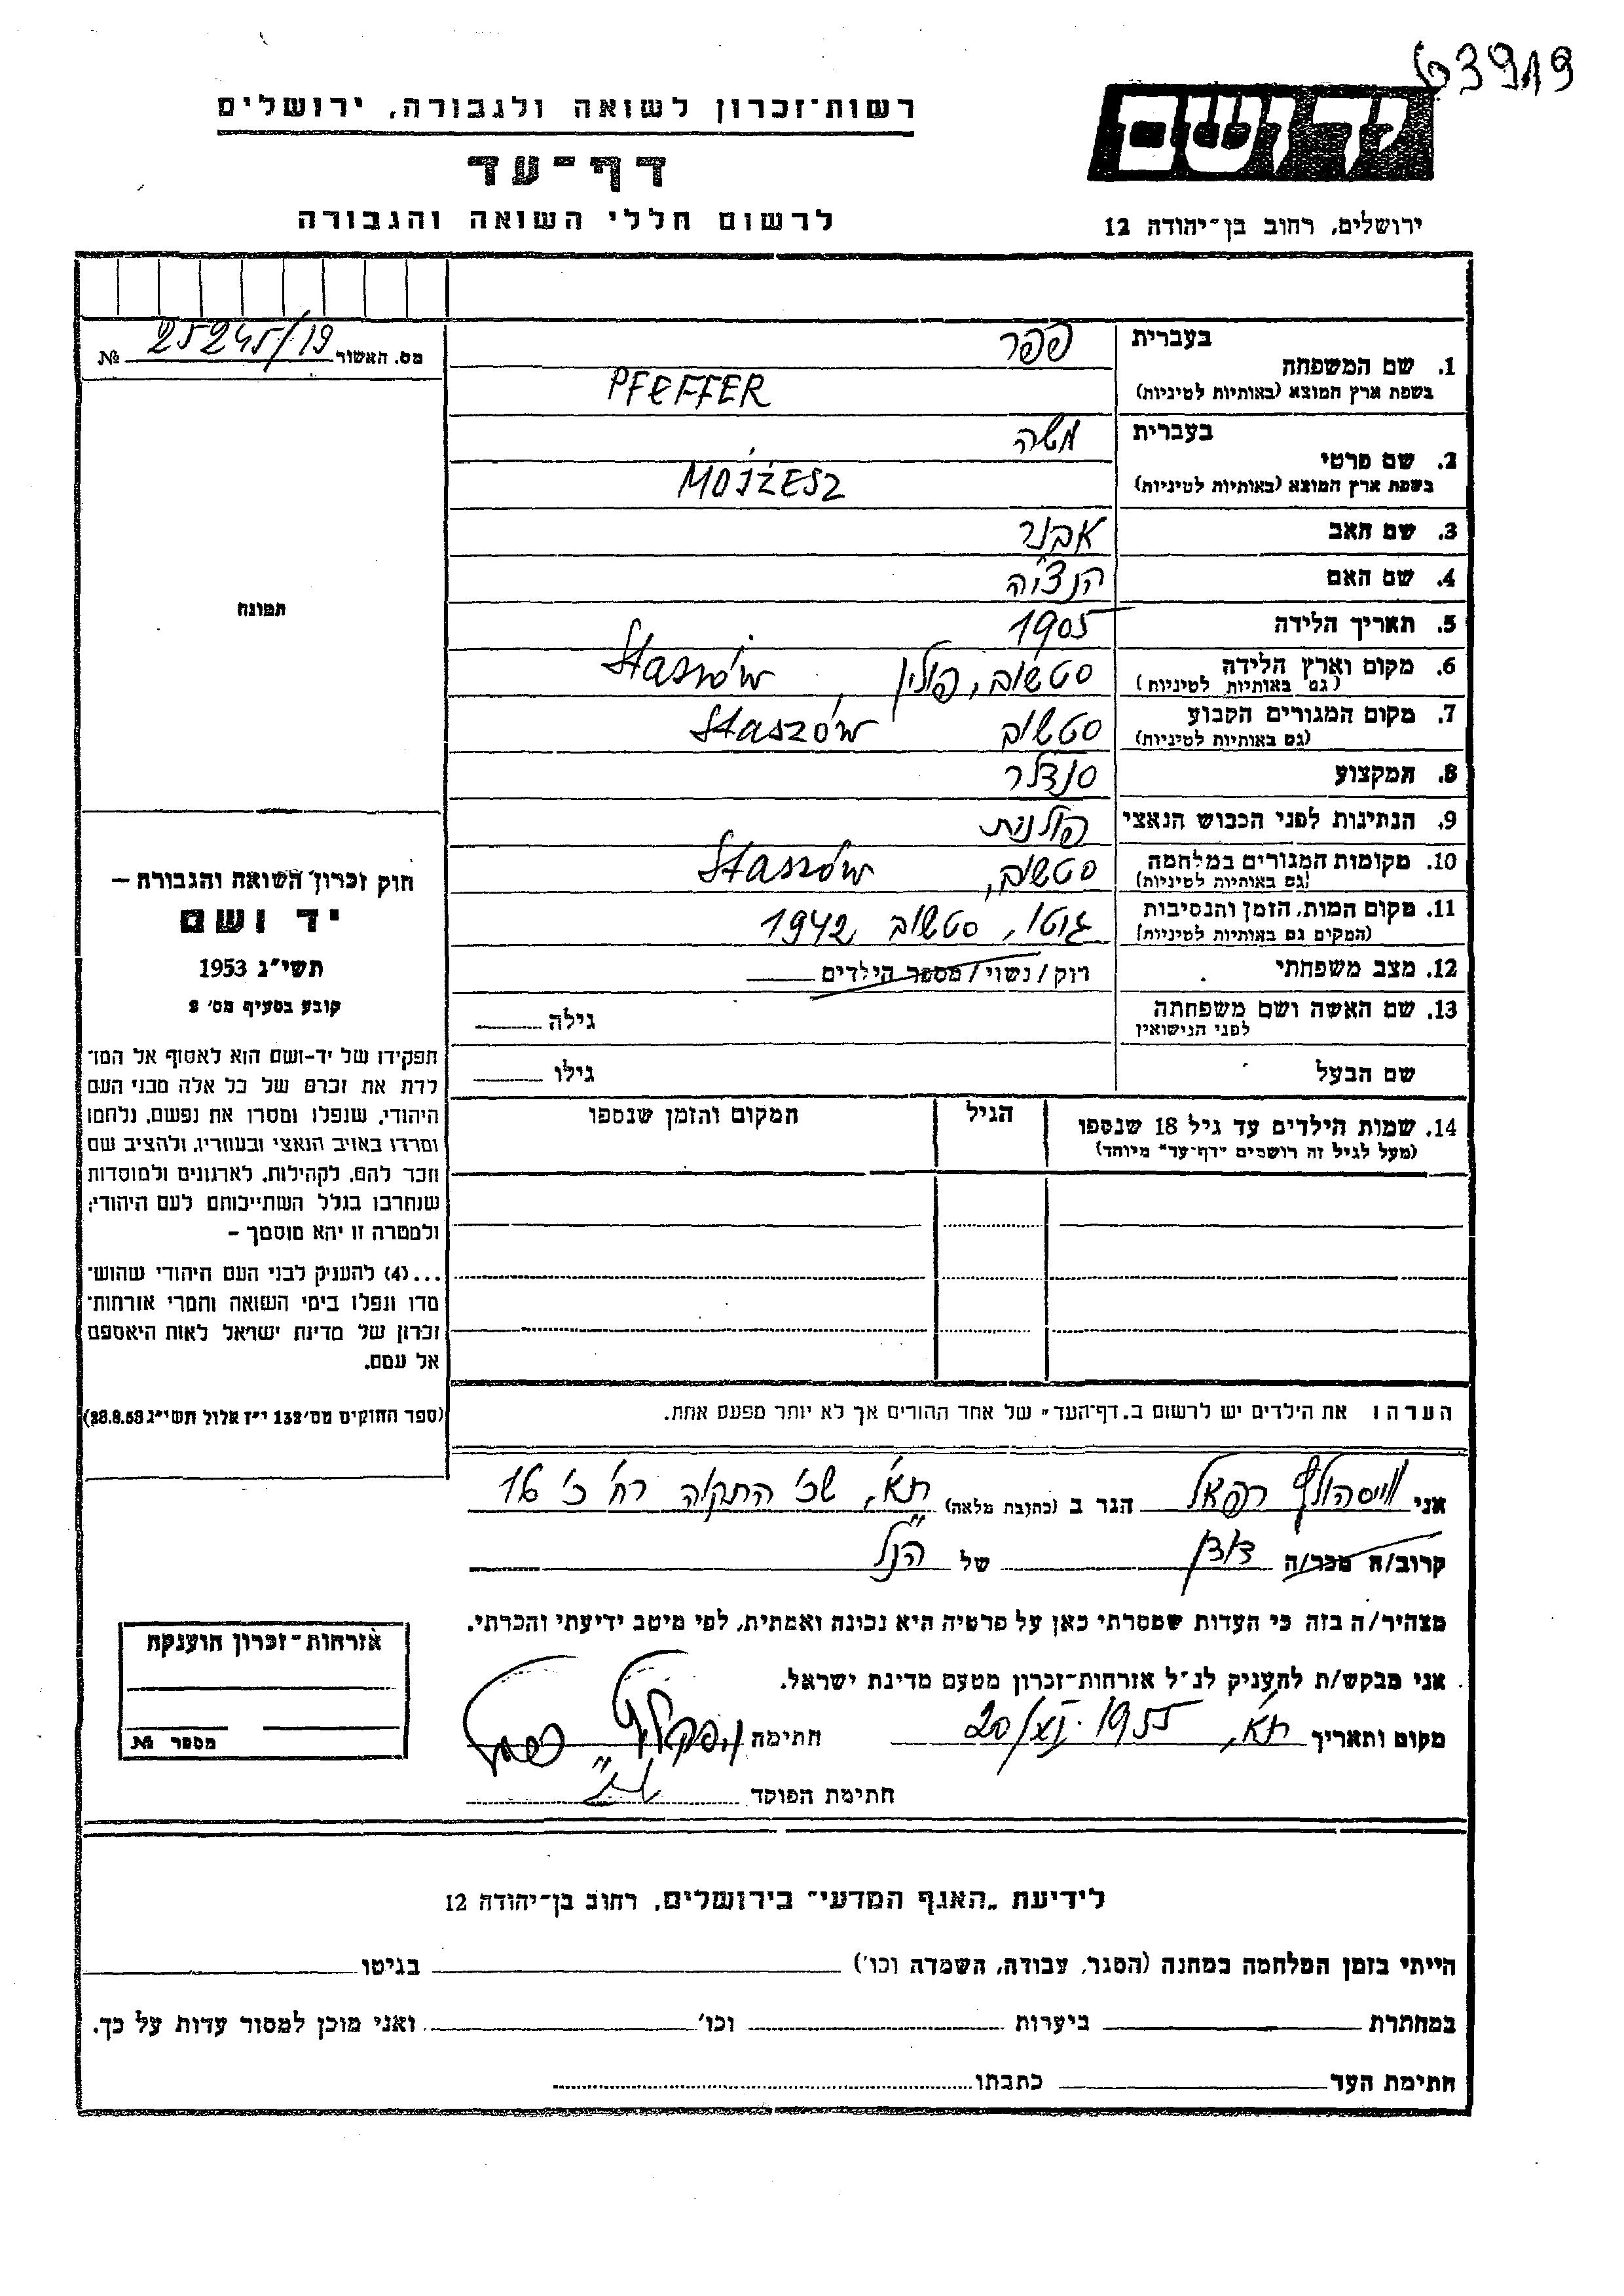 63919
רשות־זכרון לשואה ולגבורה, ירושלים
ידושם
דף־עד
לרשום חללי השואה והגבורה
ירושלים, רחוב בן־יהודה 12
מס. האשור 25245/19 №
בעברית פפר
1. שם המשפחה
בשפת ארץ המוצא (באותיות לטיניות) PFEFFER
בעברית משה
2. שם פרטי
בשפת ארץ המוצא (באותיות לטיניות) MOJŻESZ
3. שם האב אבנר
4. שם האם הנציה
תמונה
5. תאריך הלידה 1905
6. מקום וארץ הלידה סטשוב, פולין, Staszów
(גם באותיות לטיניות)
7. מקום המגורים הקבוע סטשוב Staszów
(גם באותיות לטיניות)
8. המקצוע סנדלר
9. הנתינות לפני הכבוש הנאצי פולנית
10. מקומות המגורים במלחמה סטשוב, Staszów
(גם באותיות לטיניות)
11. מקום המות, הזמן והנסיבות גטו, סטשוב 1942
(המקום גם באותיות לטיניות)
12. מצב משפחתי רוק/נשוי/מספר הילדים
13. שם האשה ושם משפחתה גילה
לפני הנישואין
שם הבעל גילו
14. שמות הילדים עד גיל 18 שנספו הגיל המקום והזמן שנספו
(מעל לגיל זה רושמים "דף־עד" מיוחד)
חוק זכרון השואה והגבורה –
יד ושם
תשי״ג 1953
קובע בסעיף מס׳ 2
תפקידו של יד-ושם הוא לאסוף אל המו־
לדת את זכרם של כל אלה מבני העם
היהודי, שנפלו ומסרו את נפשם, נלחמו
ומרדו באויב הנאצי ובעוזריו, ולהציב שם
וזכר להם, לקהילות, לארגונים ולמוסדות
שנחרבו בגלל השתייכותם לעם היהודי;
ולמטרה זו יהא מוסמך –
...(4) להעניק לבני העם היהודי שהוש־
מדו ונפלו בימי השואה והמרי אזרחות־
זכרון של מדינת ישראל לאות היאספם
אל עמם.
(ספר החוקים מס׳ 132 י״ז אלול תשי״ג 28.8.53)
הערה: את הילדים יש לרשום ב„דף־העד" של אחד ההורים אך לא יותר מפעם אחת.
אני וייסהולף רפאל הגר ב (כתובת מלאה) תא, שכ' התקוה רח' כ' 16
קרוב/ה מכר/ה דודן של הנ"ל
מצהיר/ה בזה כי העדות שמסרתי כאן על פרטיה היא נכונה ואמתית, לפי מיטב ידיעתי והכרתי.
אני מבקש/ת להעניק לנ״ל אזרחות־זכרון מטעם מדינת ישראל.
מקום ותאריך תא, 20/XI.1955 חתימה
חתימת הפוקד
אזרחות־זכרון הוענקה
מספר №
לידיעת „האגף המדעי" בירושלים, רחוב בן־יהודה 12
הייתי בזמן המלחמה במחנה (הסגר, עבודה, השמדה וכו׳) בגיטו
במחתרת ביערות וכו׳ ואני מוכן למסור עדות על כך.
חתימת העד כתבתו